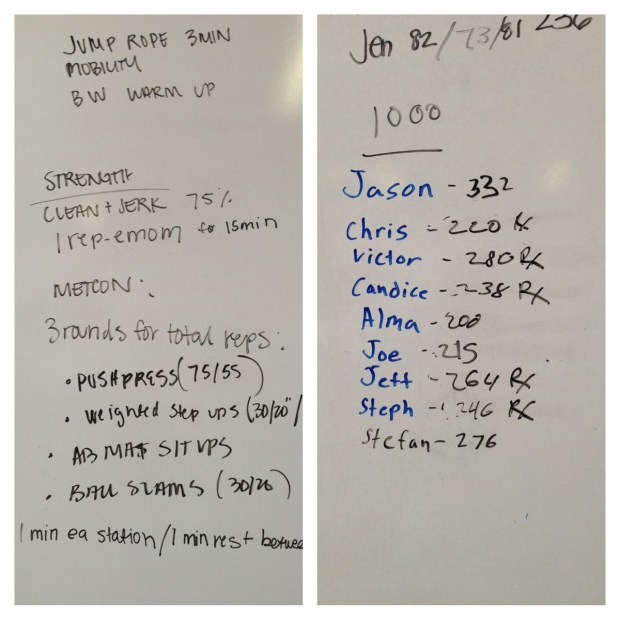 JUMP ROPE 3MIN
MOBILITY
BW WARM UP
STRENGTH
CLEAN + JERK 75%
1 rep-emom for 15min
METCON:
3 rounds for total reps:
• PUSHPRESS (75/55)
• weighted step ups (30/20"/
• AB MAT SIT UPS
• BALL SLAMS (30/20)
1 min ea station/1 min rest between
Jen 82/73/81 236
1000
Jason - 332
Chris - 220 Rx
Victor - 280 Rx
Candice - 238 Rx
Alma - 200
Joe - 215
Jeff - 264 Rx
Steph - 246 Rx
Stefan - 276